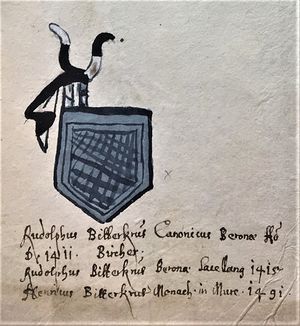 Rudolphus Bitterkrut Canonicus Beronæ
1411. Bircher.
Rudolphus Bitterkrut Beronæ 1415
Henricus Bitterkrut Monach. in Mure. 1491.